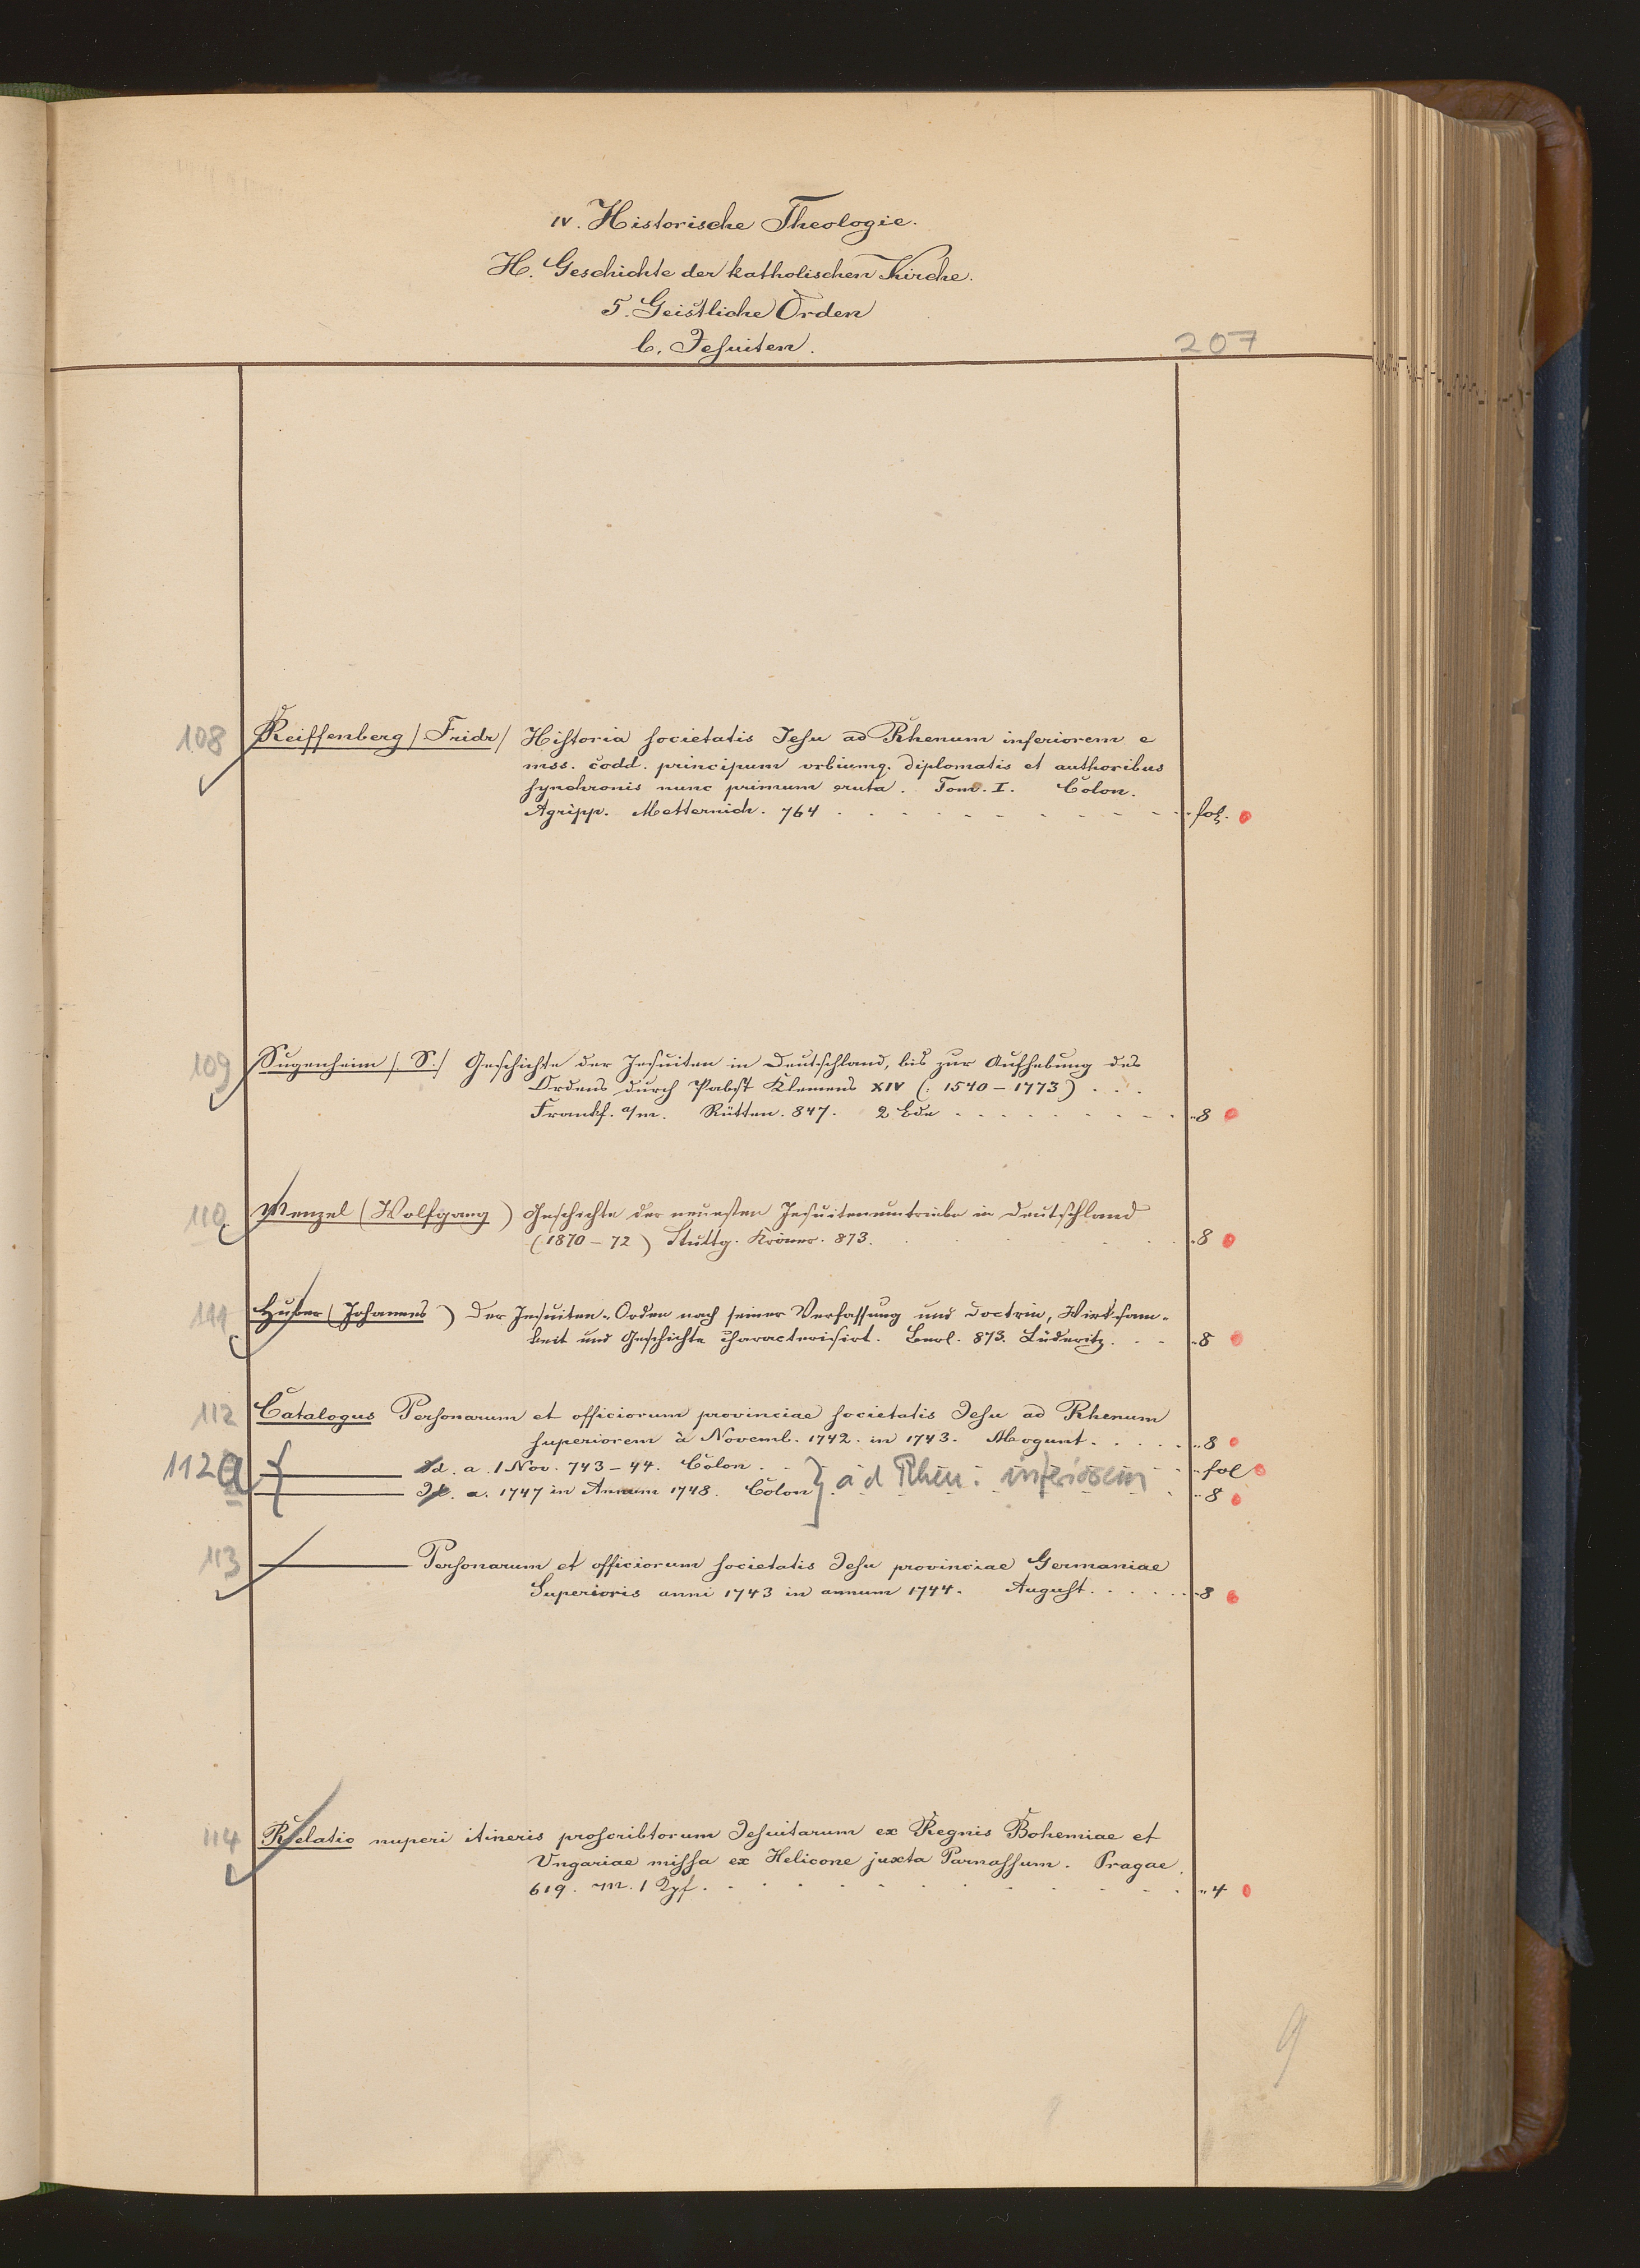 IV. Historische Theologie.
H. Geschichte der katholischen Kirche.
5. Geistliche Orden
b. Jesuiten.
207
108 Reiffenberg / Fridr / Historia societatis Jesu ad Rhenum inferiorem e
mss. codd. principum vrbiumq. diplomatis et authoribus
synchronis nunc primum eruta. Tom. I. Colon.
Agripp. Metternich. 764 . . . . . . . . . . fol.
109 Sugenheim /. S./ Geschichte der Jesuiten in Deutschland, bis zur Aufhebung des
Ordens durch Pabst Klemens XIV (: 1540 – 1773) . . .
Frankf. a/m. Rütten. 847. 2 Bde . . . . . . . . 8
110 Menzel (Wolfgang) Geschichte der neuesten Jesuitenumtriebe in Deutschland
(1870 – 72) Stuttg. Kröner. 873. . . . . . 8
111 Huber (Johannes) Der Jesuiten-Orden nach seiner Verfassung und Doctrin, Wirksam-
keit und Geschichte characterisirt. Berl. 873. Lüderitz. . . 8
112 Catalogus Personarum et officiorum provinciae societatis Jesu ad Rhenum
superiorem à Novemb. 1742. in 1743. Mogunt. . . . . . 8
112a { —— Id. a. 1 Nov. 743 – 44. Colon. . . } ad Rhen. inferiorem . . fol
—— Id. a. 1747 in Annum 1748. Colon . . . 8
113 —— Personarum et officiorum societatis Jesu provinciae Germaniae
Superioris anni 1743 in annum 1744. August. . . . . . 8
114 Relatio nuperi itineris proscribtorum Jesuitarum ex Regnis Bohemiae et
Vngariae missa ex Helicone juxta Parnassum. Pragae.
619. m. 1 Kpf. . . . . . . . . . . 4
9